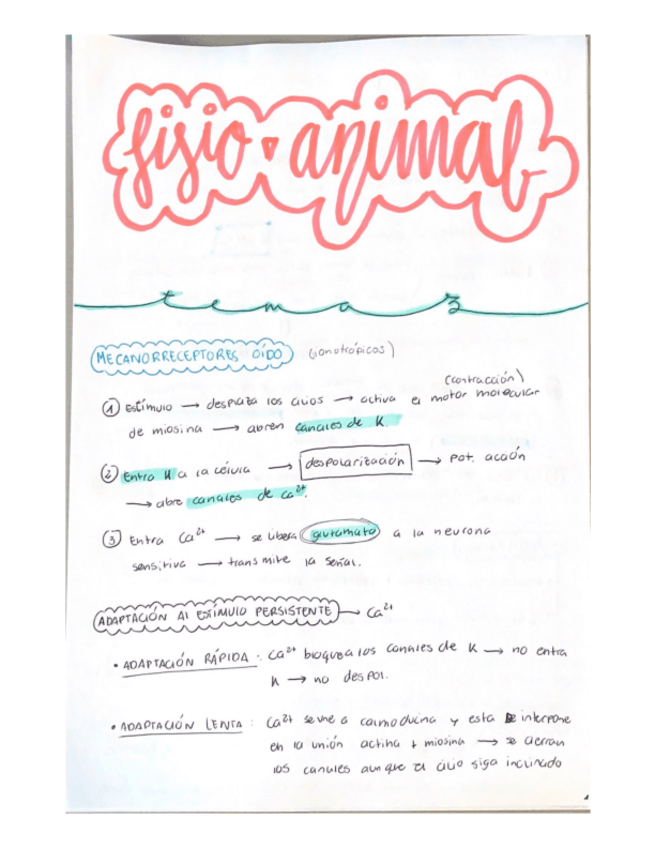 fisio•animal
tema 3
MECANORRECEPTORES OÍDO (ionotrópicos)
(contracción)
① Estímulo → desplaza los cilios → activa el motor molecular
de miosina → abren canales de K
② Entra K a la célula → despolarización → pot. acción
→ abre canales de Ca²⁺.
③ Entra Ca²⁺ → se libera glutamato a la neurona
sensitiva → transmite la señal.
ADAPTACIÓN Al ESTÍMULO PERSISTENTE → Ca²⁺
• ADAPTACIÓN RÁPIDA: Ca²⁺ bloquea los canales de K → no entra
K → no despol.
• ADAPTACIÓN LENTA: Ca²⁺ se une a calmodulina y esta se interpone
en la unión actina + miosina → se cierran
los canales aunque el cilio siga inclinado